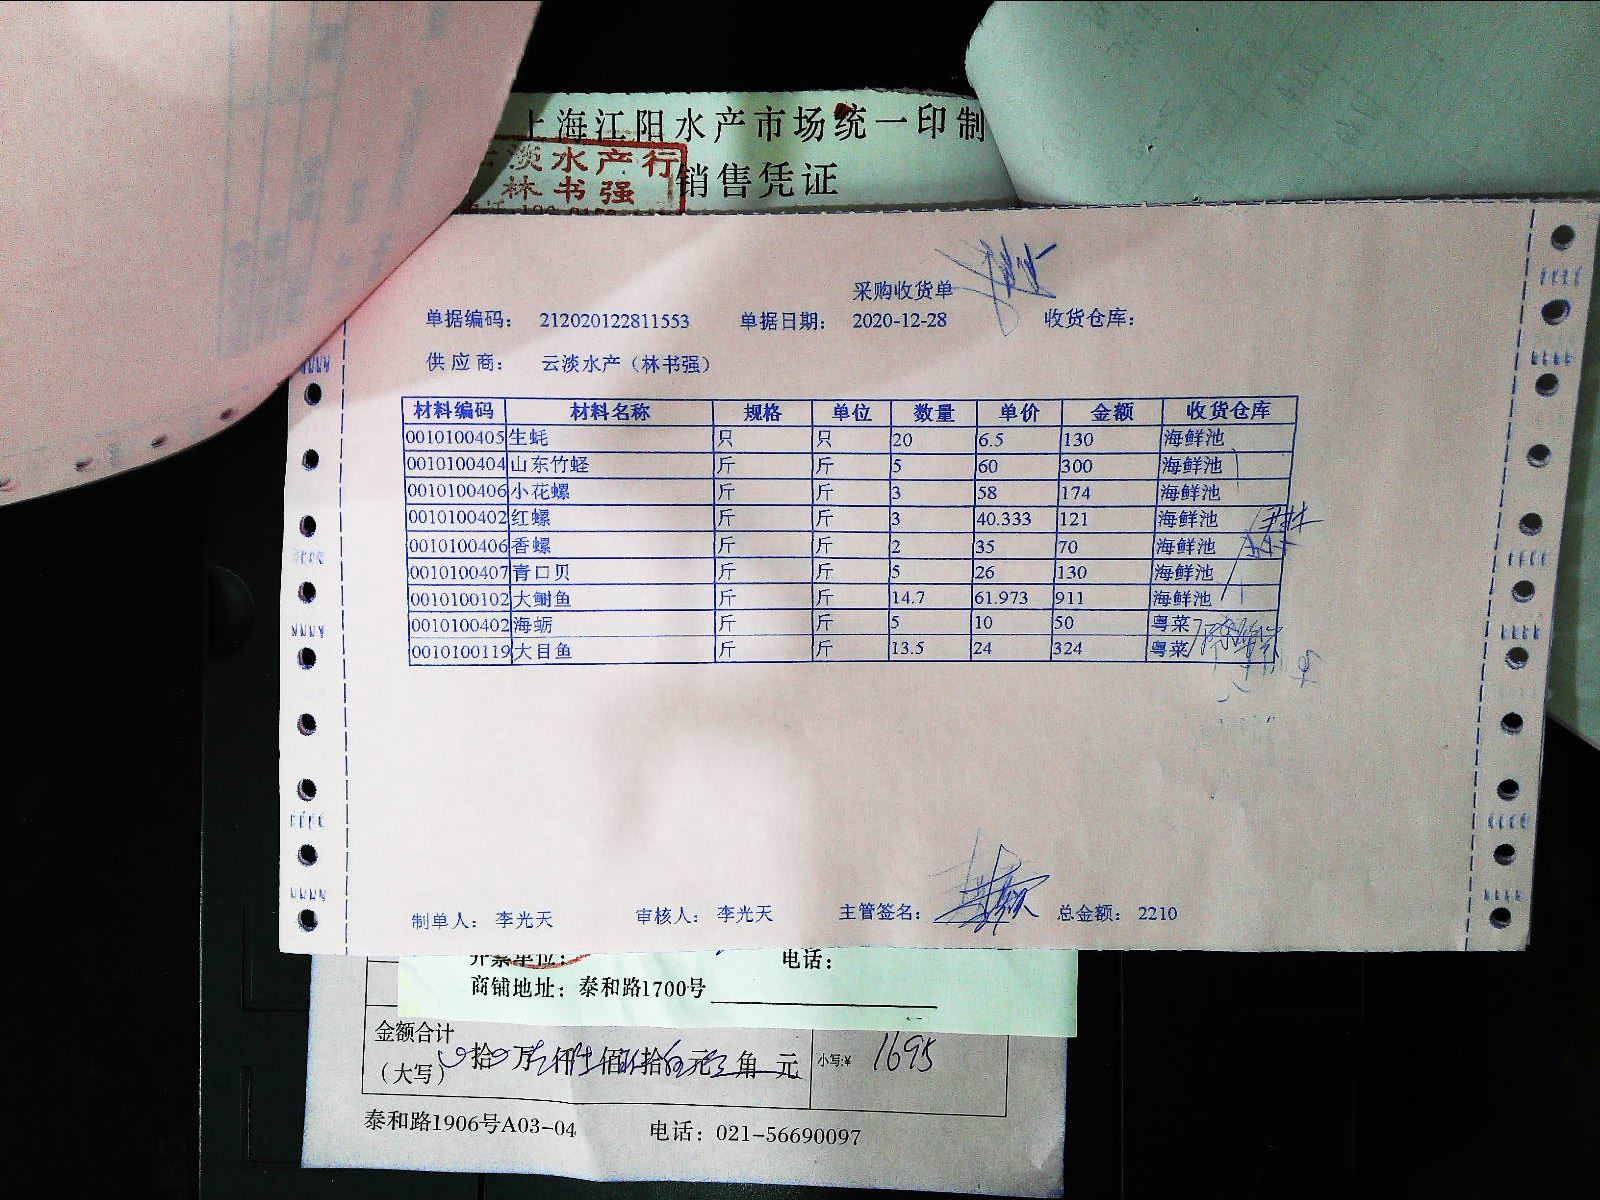 上海江阳水产市场统一印制
云淡水产行
林书强
销售凭证
采购收货单
单据编码： 212020122811553 单据日期： 2020-12-28 收货仓库：
供 应 商： 云淡水产（林书强）
材料编码 材料名称 规格 单位 数量 单价 金额 收货仓库
0010100405 生蚝 只 只 20 6.5 130 海鲜池
0010100404 山东竹蛏 斤 斤 5 60 300 海鲜池
0010100406 小花螺 斤 斤 3 58 174 海鲜池
0010100402 红螺 斤 斤 3 40.333 121 海鲜池
0010100406 香螺 斤 斤 2 35 70 海鲜池
0010100407 青口贝 斤 斤 5 26 130 海鲜池
0010100102 大鲥鱼 斤 斤 14.7 61.973 911 海鲜池
0010100402 海蛎 斤 斤 5 10 50 粤菜
0010100119 大目鱼 斤 斤 13.5 24 324 粤菜
制单人： 李光天 审核人： 李光天 主管签名： 总金额： 2210
开票单位： 电话：
商铺地址：泰和路1700号
金额合计
（大写） 拾 万 仟 佰 拾 元 角 元 小写:¥ 1695
泰和路1906号A03-04 电话：021-56690097